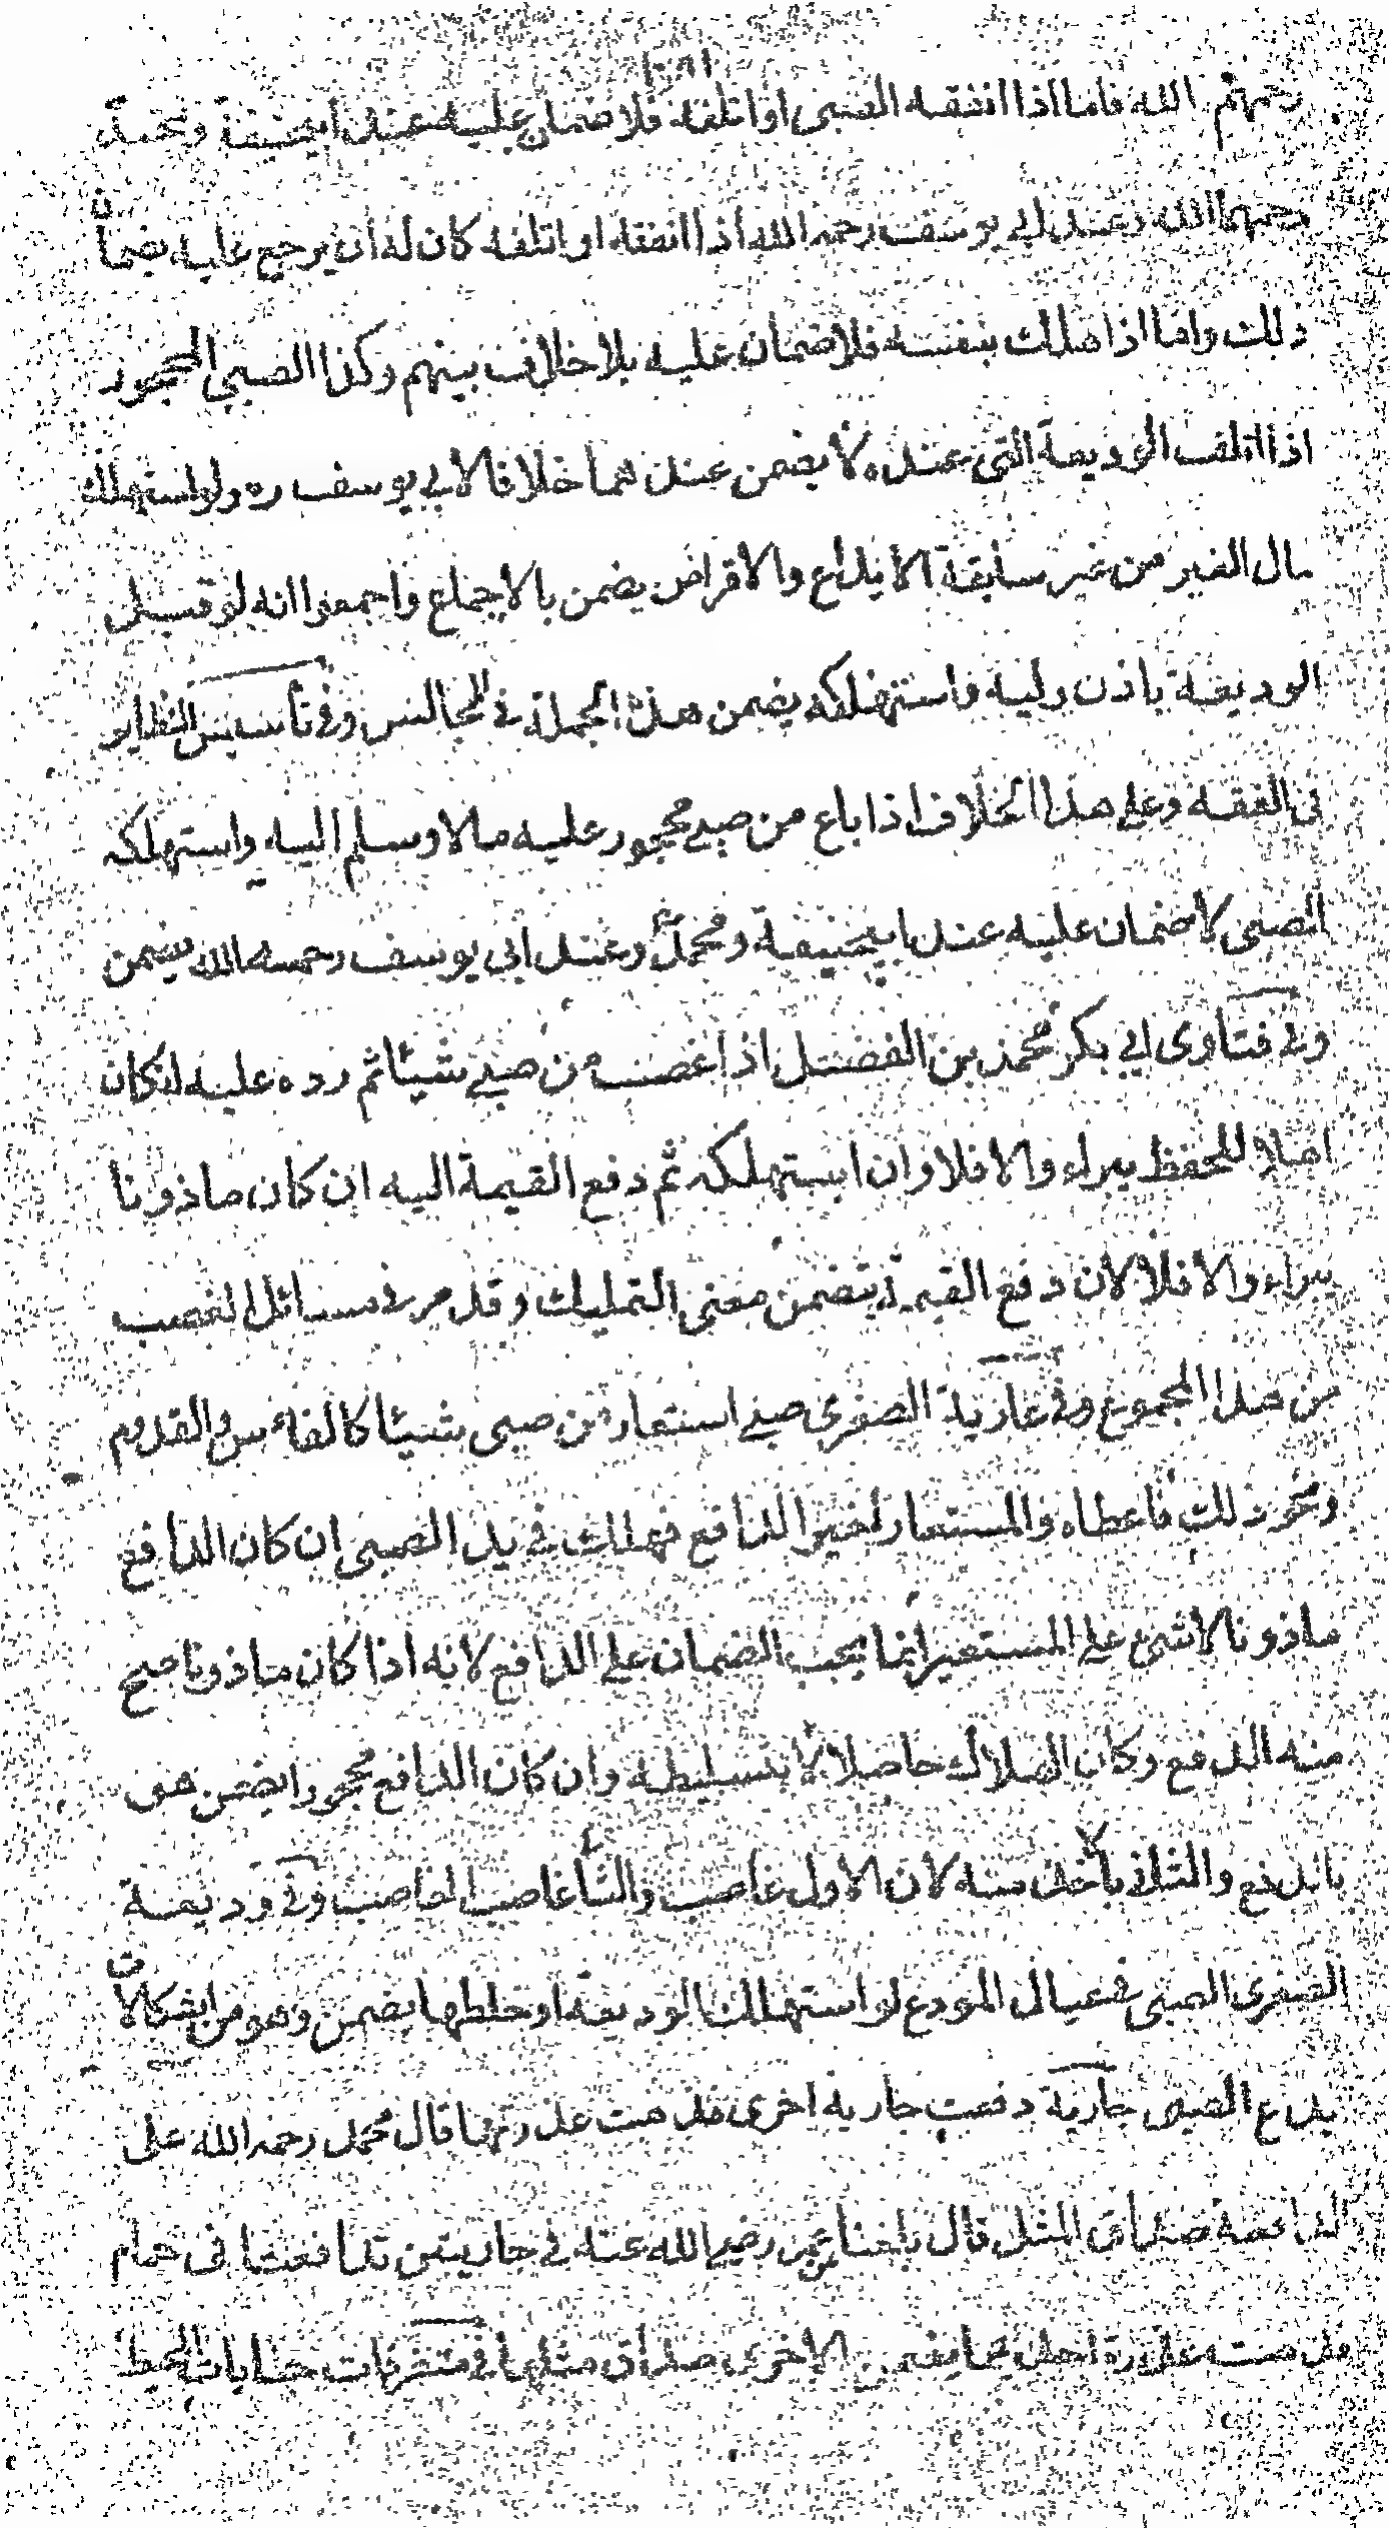 رحمهم الله فاما اذا انفقه الصبى او اتلفه فلا ضمان عليه عند ابيحنيفة ومحمد
رحمهما الله وعند ابي يوسف رحمه الله اذا انفقه او اتلفه كان له ان يرجع عليه بضمان
ذلك واما اذا هلك بنفسه فلا ضمان عليه بلا خلاف بينهم وكذا الصبي المحجور
اذا اتلف الوديعة التى عنده لا يضمن عندهما خلافا لابي يوسف ره ولو استهلك
مال الغير من غير سابقة الايداع والاقراض يضمن بالاجماع واجمعوا انه لو قبل
الوديعة باذن وليه واستهلكه يضمن هذه الجملة في المجالس وفي تأسيس النظاير
في الفقه وعلى هذا الخلاف اذا باع من صبي محجور عليه مالا وسلم اليه واستهلكه
الصبى لا ضمان عليه عند ابيحنيفة ومحمد وعند ابى يوسف رحمه الله يضمن
وفي فتاوى ابي بكر محمد بن الفضل اذا غصب من صبي شيئا ثم رده عليه ان كان
اهلا للحفظ يبراء والا فلا وان استهلكه ثم دفع القيمة اليه ان كان ماذونا
يبراء والا فلا لان دفع القيمة يتضمن معنى التمليك وقد مر في مسائل الغصب
من هذا المجموع وفي عارية الصغرى صبي استعار من صبى شيئا كالفاس والقدوم
ونحو ذلك فاعطاه والمستعار لغير الدافع فهلك في يد الصبى ان كان الدافع
ماذونا لا شئ على المستعير انما يجب الضمان على الدافع لانه اذا كان ماذونا صح
منه الدفع وكان الهلاك حاصلا بتسليطه وان كان الدافع محجورا يضمن هو
بالدفع والثاني بالاخذ منه لان الاول غاصب والثانى غاصب الغاصب وفي وديعة
الصغرى الصبى في عيال المودع لو استهلك الوديعة او خلطها يضمن وهو من اشكالات
ايداع الصبي جارية دفعت جارية اخرى فذهبت عذرتها قال محمد رحمه الله على
الدافعة صداق المثل قال بلغنا عن عمر رضى الله عنه في جاريتين تدافعتا في حمام
فذهبت عذرة احداهما فضمن الاخرى صداق مثلها في متفرقات جنايات المحيط